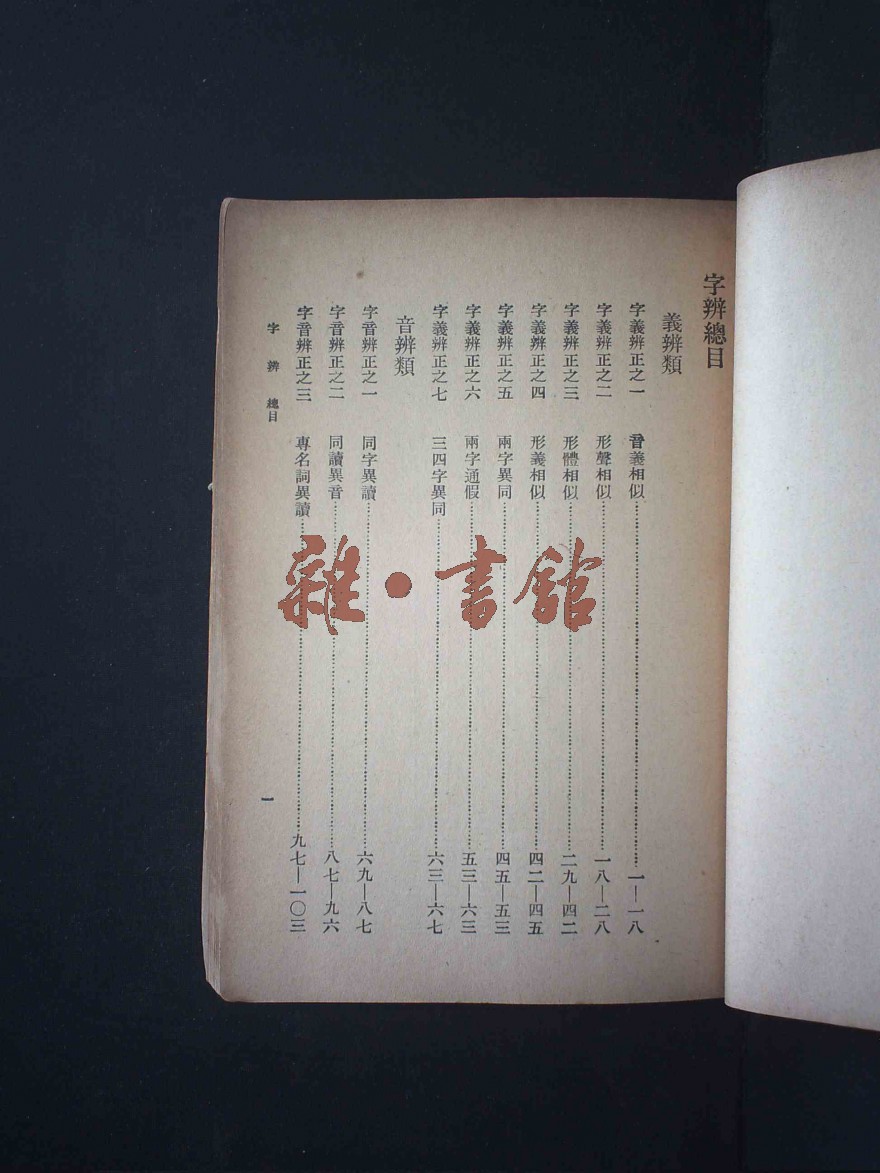 字辨總目
義辨類
字義辨正之一 音義相似……一—一八
字義辨正之二 形聲相似……一八—二八
字義辨正之三 形體相似……二九—四二
字義辨正之四 形義相似……四二—四五
字義辨正之五 兩字異同……四五—五三
字義辨正之六 兩字通假……五三—六三
字義辨正之七 三四字異同……六三—六七
音辨類
字音辨正之一 同字異讀……六九—八七
字音辨正之二 同讀異音……八七—九六
字音辨正之三 專名詞異讀……九七—一〇三
字辨 總目
一
雜•書館